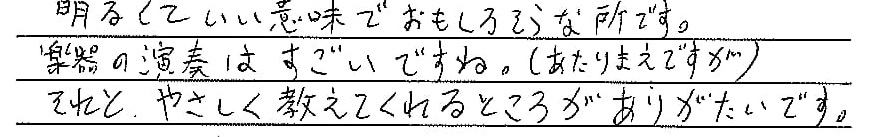 明るくていい意味でおもしろそうな所です。
楽器の演奏はすごいですね。(あたりまえですが)
それと、やさしく教えてくれるところがありがたいです。